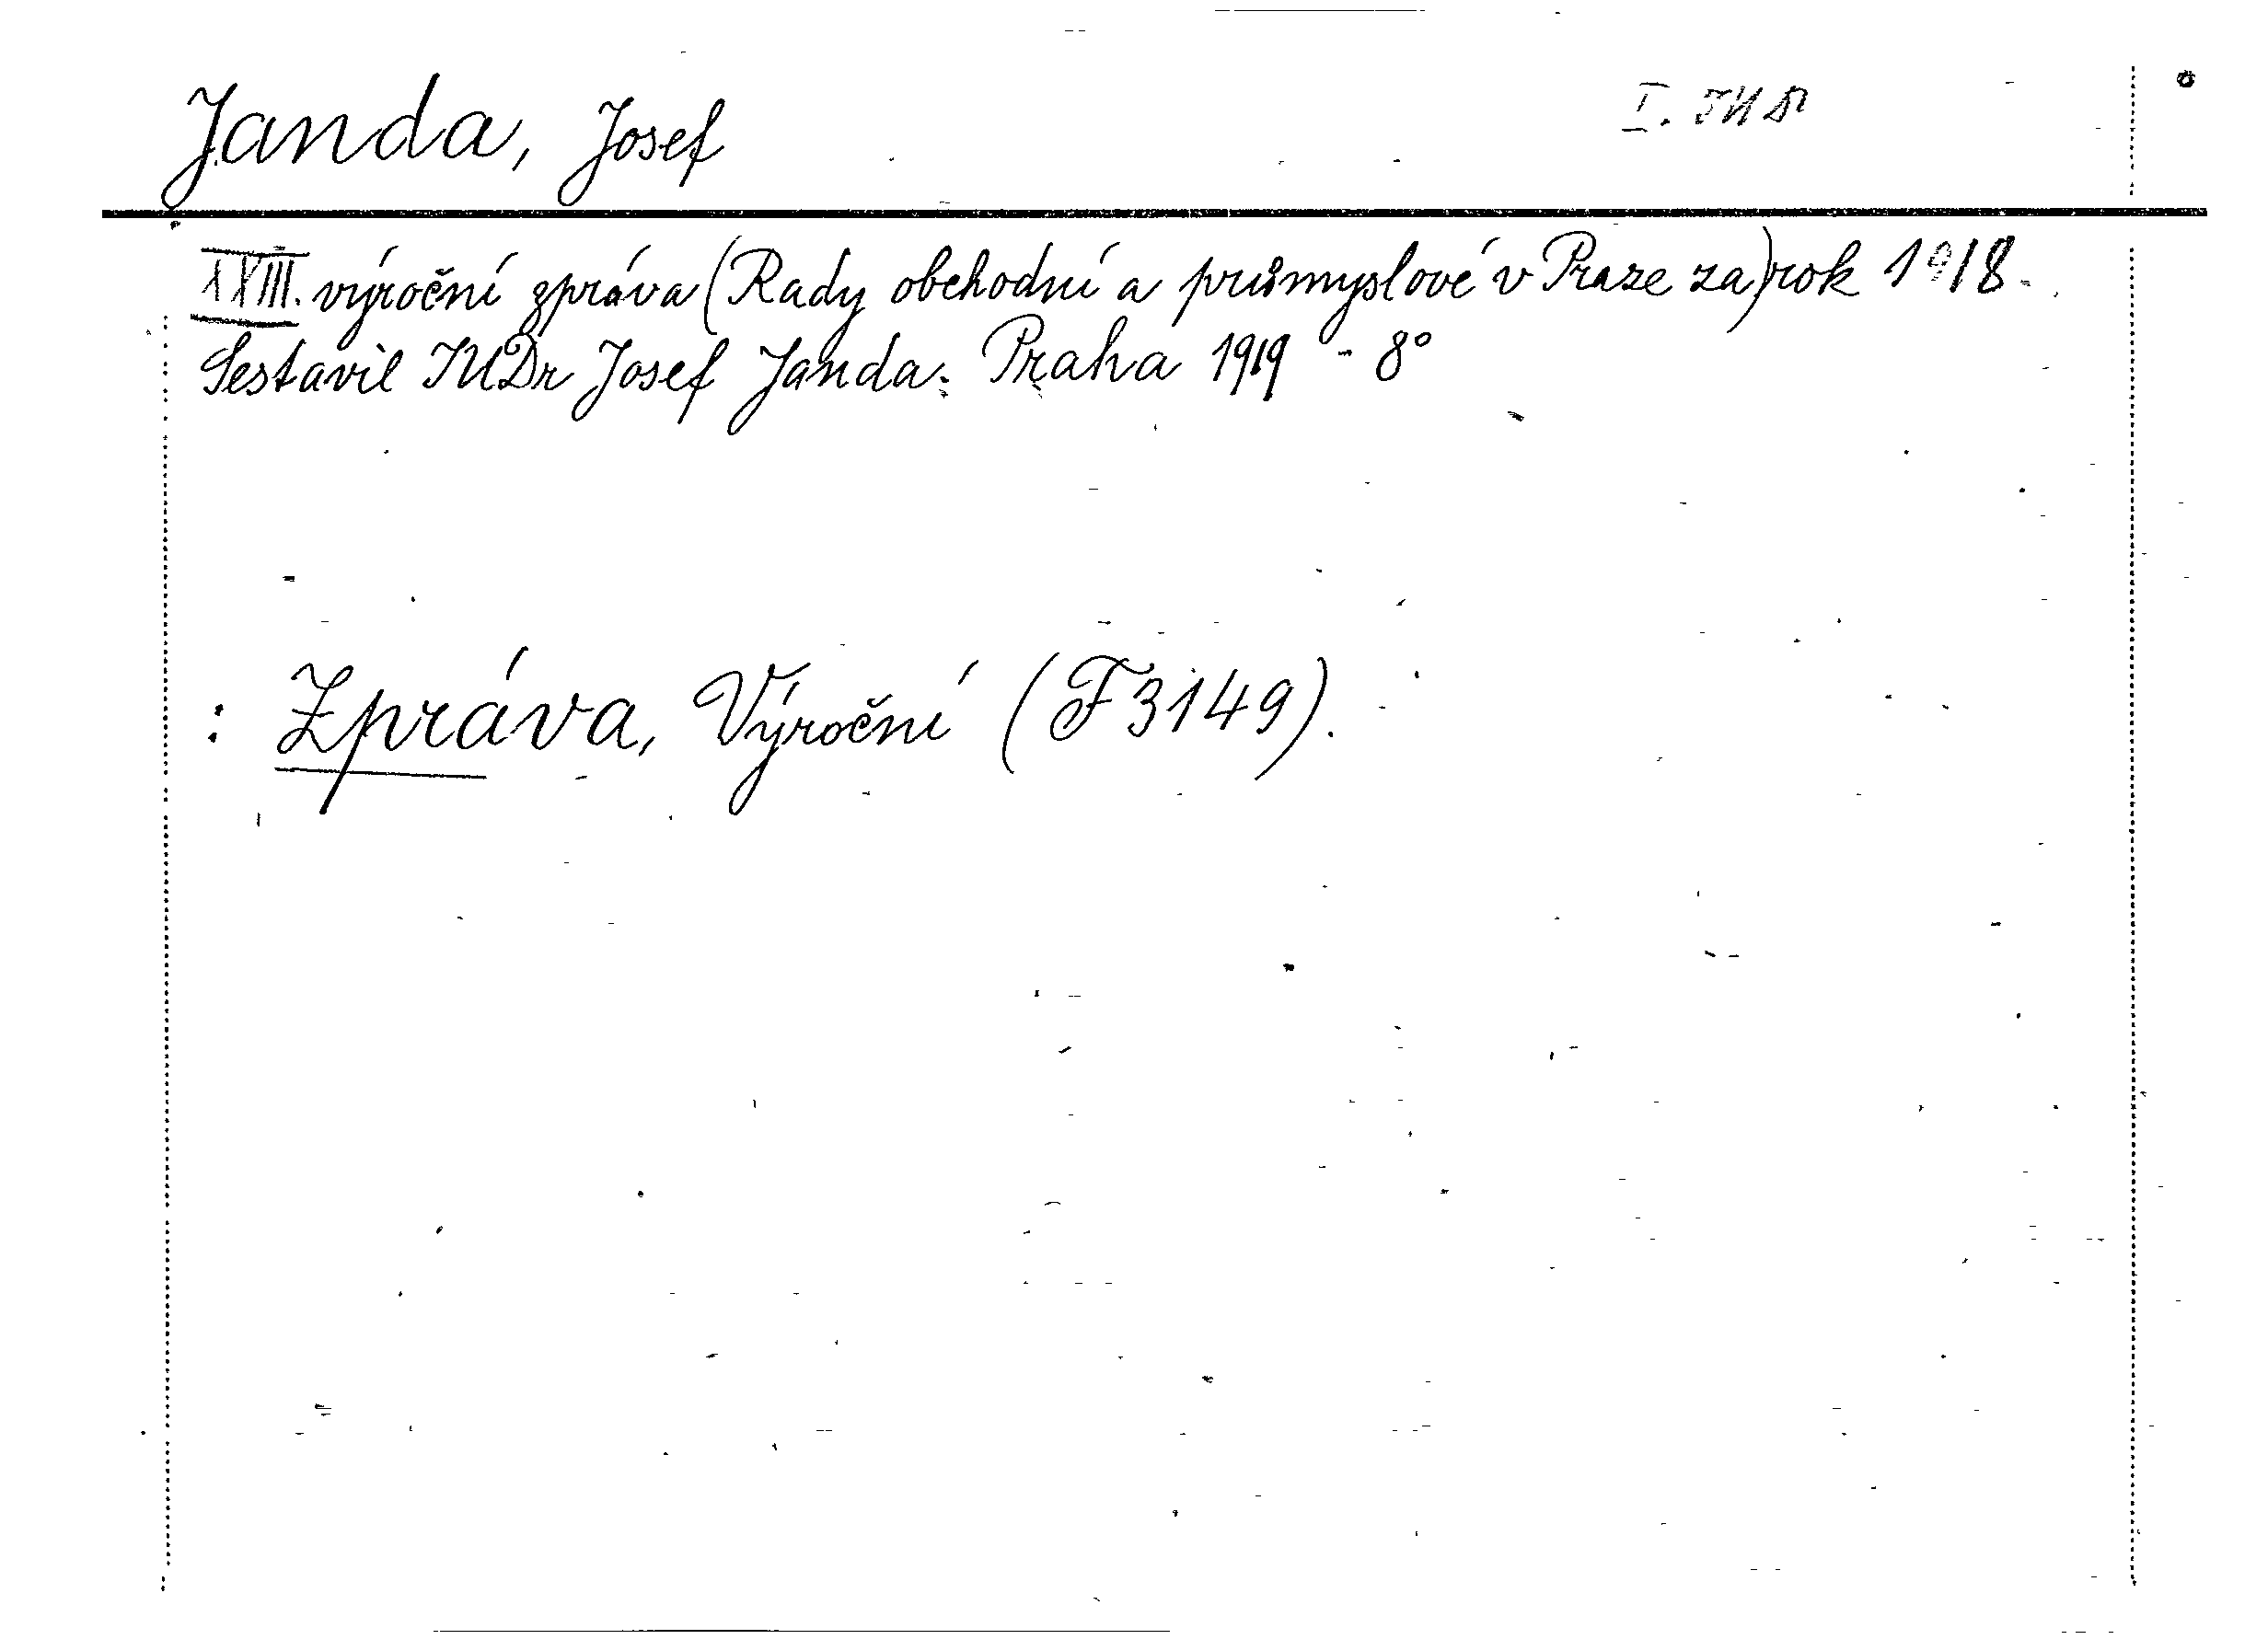 Janda, Josef
XXIII. výroční zpráva (Rady obchodní a průmyslové v Praze za) rok 1918.
Sestavil JUDr Josef Janda. Praha 1919 - 8°
: Zpráva, Výroční (F3149).